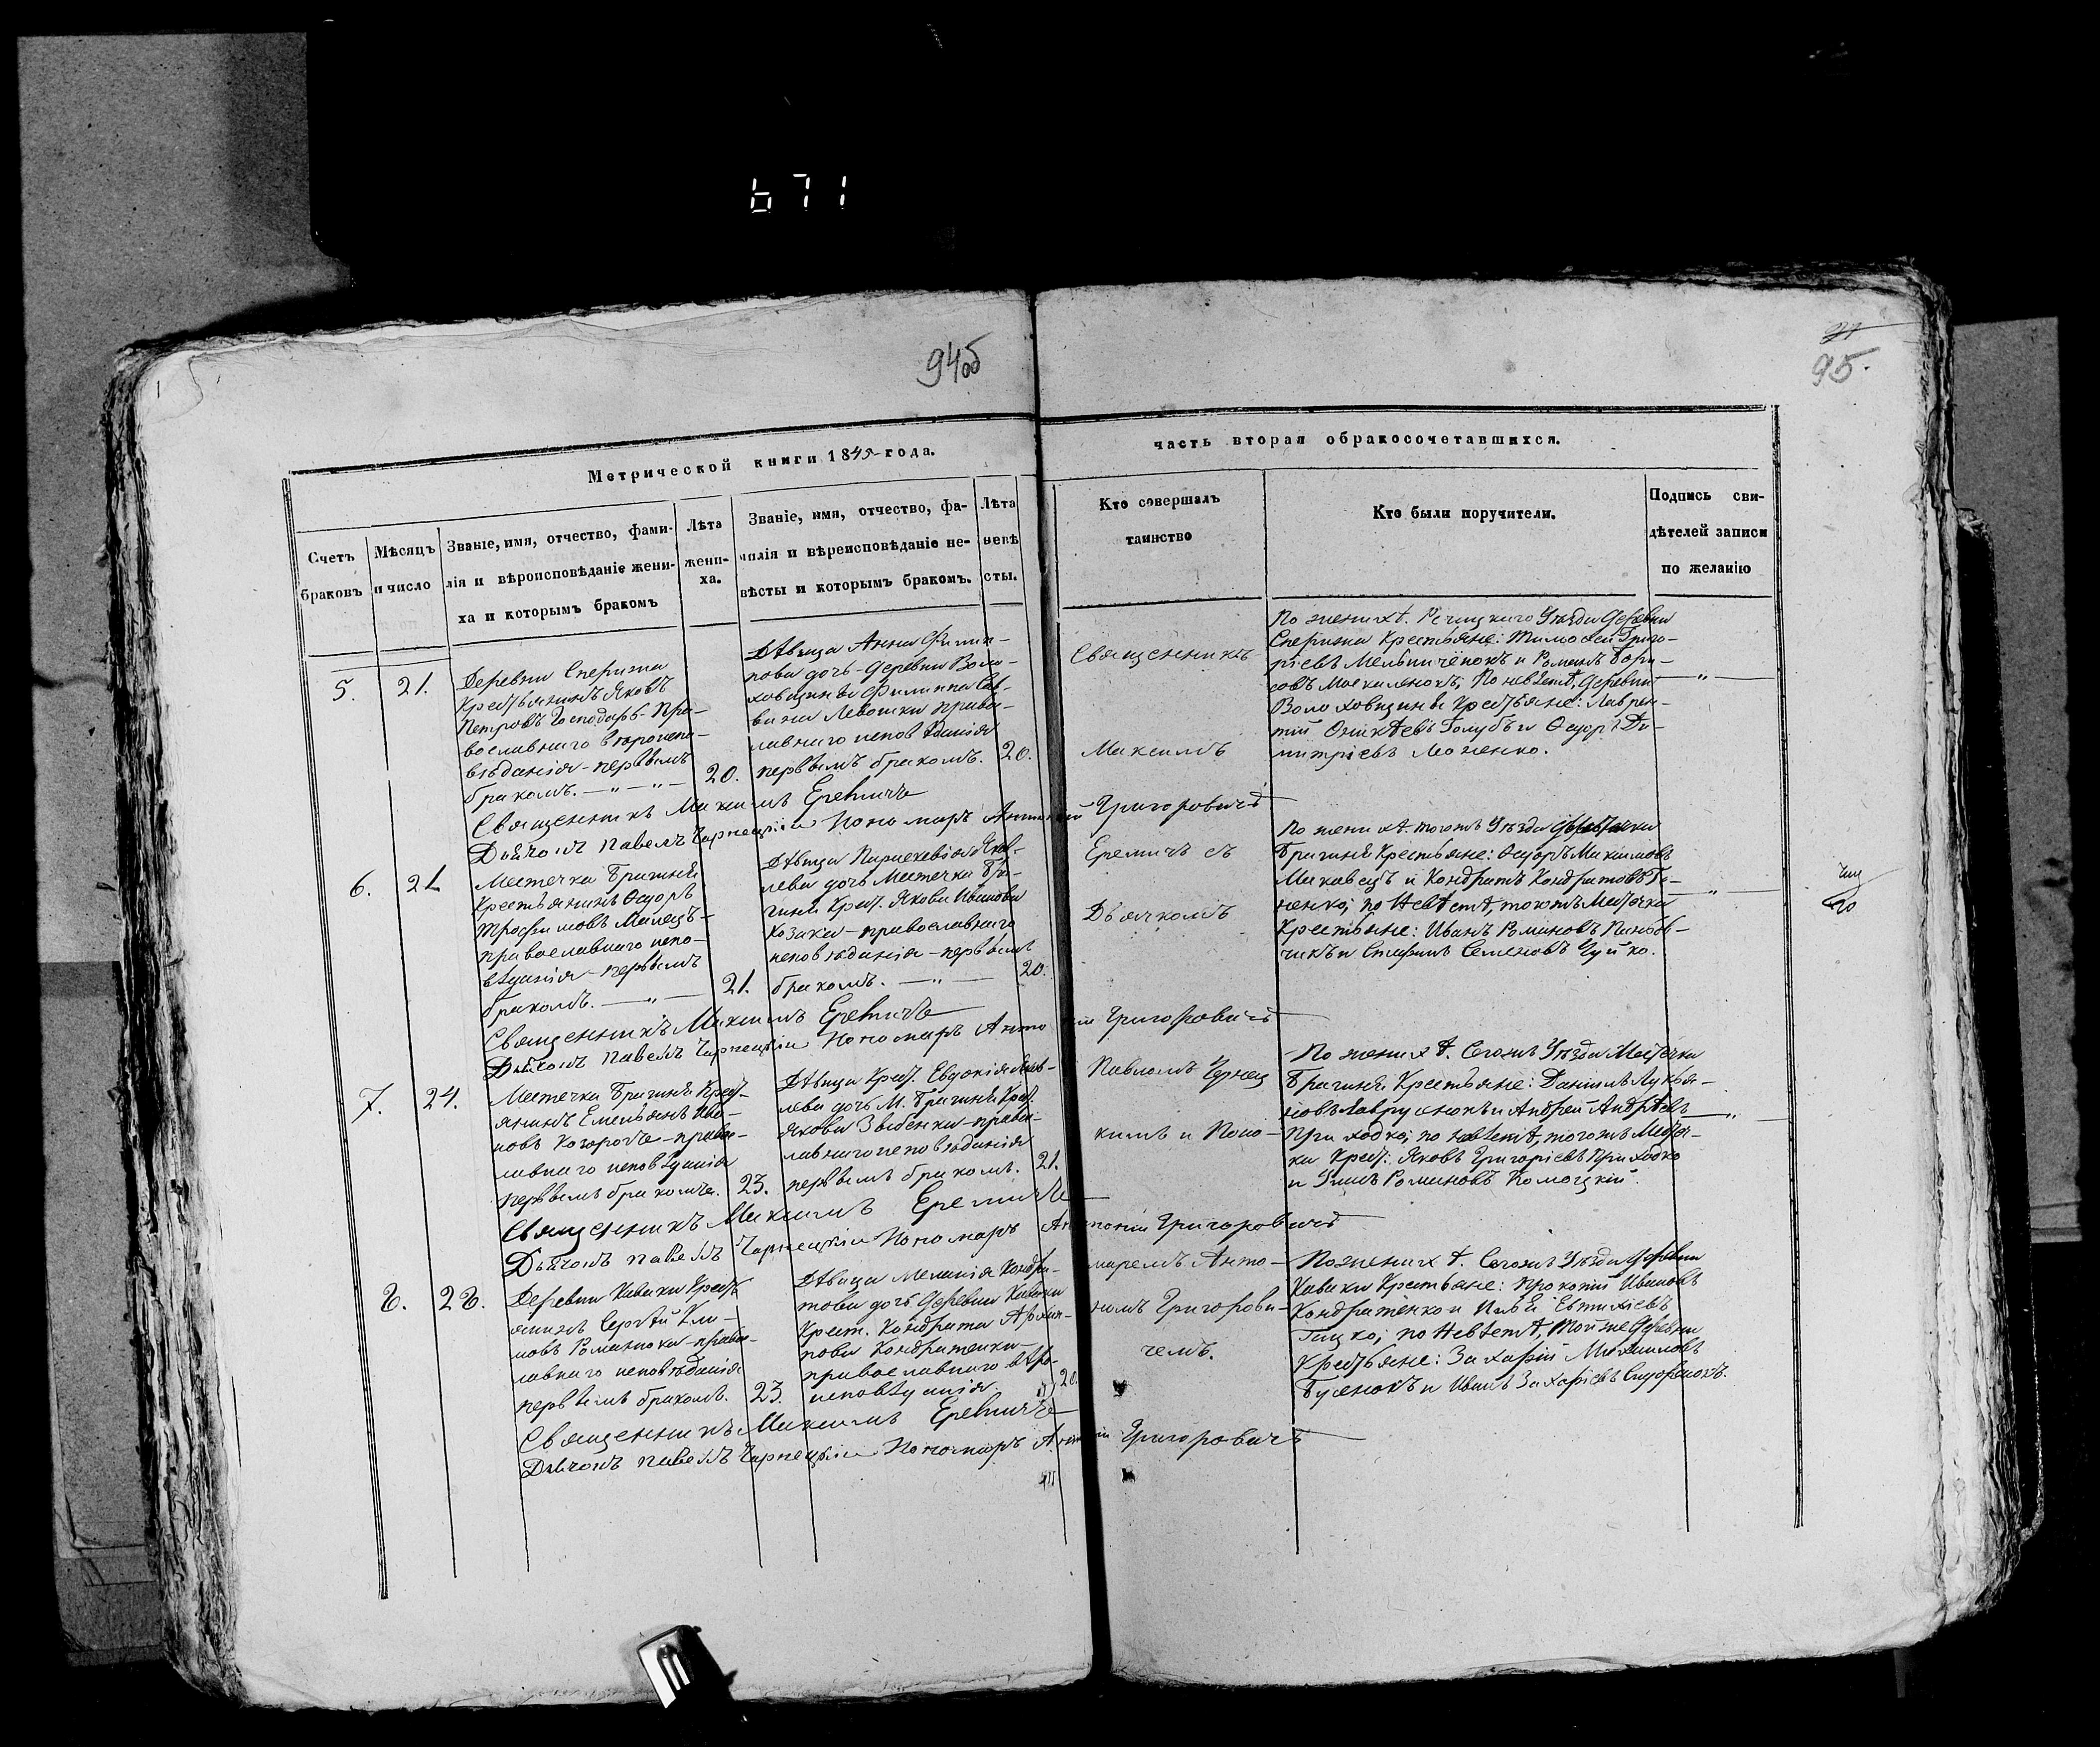 671
94об
95.
Метрической книги 1845 года.
часть вторая обракосочетавшихся.
Счетъ браковъ
Мѣсяцъ и число
Званіе, имя, отчество, фами-
лія и вѣроисповѣданіе жени-
ха и которымъ бракомъ
Лѣта
жени-
ха.
Званіе, имя, отчество, фа-
милія и вѣреисповѣданіе не-
вѣсты и которымъ бракомъ.
Лѣта
невѣ
сты.
Кто совершалъ
таинство
Кто были поручители.
Подпись сви-
дѣтелей записи
по желанію
5.
21.
Деревни Спериша
Крестьянинъ Яковъ
Петровъ Господарь - Пра-
вославнаго вѣроиспо-
вѣданія - первымъ
бракомъ. — „ — „ —
20.
Дѣвица Анна Филип-
пова дочь - деревни Воло-
ховщины Филиппа Сав-
вина Левошки право-
славнаго исповѣданія
первымъ бракомъ.
20.
Священникъ
Максимъ
По женихѣ. Речицкаго Уѣзда Деревни
Спериша Крестьяне: Тимофей Григо-
рьевъ Мельниченокъ и Романъ Бори-
совъ Москаленокъ; По невѣстѣ, Деревни
Волоховщины Крестьяне: Лаврен-
тій Голубъ и Ѳедоръ Ди-
митріевъ Моженко.
— „ —
Священникъ Максимъ Еремичъ
Дьячокъ Павелъ Чернецкій Пономарь Антоній Григоровичъ
6.
21.
Местечка Брагиня
Крестьянинъ Ѳедоръ
Трофимовъ Малецъ -
православнаго испо-
вѣданія - первымъ
бракомъ. — „ —
21.
Дѣвица Параскевія Яков-
лева дочь Местечка Бра-
гиня Крест. Якова Иванова
Козака - православнаго
исповѣданія - первымъ
бракомъ. — „ —
20.
Еремичъ съ
Дьячкомъ
По женихѣ. тогожъ Уѣзда Местечка
Брагиня Крестьяне: Ѳедоръ Максимовъ
Маковецъ и Кондратъ Кондратовъ
по невѣстѣ, тогожъ Местечка
Крестьяне: Иванъ Романовъ
и Стефанъ Семеновъ Чуйко.
— „ —
Священникъ Максимъ Еремичъ
Дьячокъ Павелъ Чернецкій Пономарь Антоній Григоровичъ
7.
24.
Местечка Брагиня Крест-
янинъ Емельянъ Ива-
новъ - право-
славнаго исповѣданія
первымъ бракомъ.
23.
Дѣвица Крест. Евдокія Яков-
лева дочь М. Брагиня Крест.
Якова - право-
славнаго исповѣданія
первымъ бракомъ.
21.
Павломъ Чернец
кимъ и Поно-
По женихѣ. Сегожъ Уѣзда Местечка
Брагиня Крестьяне: Даніилъ Лукья-
новъ Лаврусенокъ и Андрей Андреевъ
Приходко; по невѣстѣ, тогожъ Местеч-
ки Крест: Яковъ Григоріевъ Приходко
и Романовъ
— „ —
Священникъ Максимъ Еремичъ
Дьячокъ Павелъ Чернецкій Пономарь Антоній Григоровичъ
8.
28.
Деревни Каваки Крест-
янинъ Сергѣй Кли-
мовъ Романюка - право-
славнаго исповѣданія
первымъ бракомъ.
23.
Дѣвица Меланія Кондра-
това дочь Деревни Каваки
Крест. Кондрата Архип-
пова Кондратенка
православнаго вѣро-
исповѣданія.
20.
маремъ Анто-
ніемъ Григорови-
чемъ.
По женихѣ. Сегожъ Уѣзда Деревни
Каваки Крестьяне: Прокопій Ивановъ
Кондратенко и Евтихіевъ
Гацко; по невѣстѣ, Той же Деревни
Крестьяне: Захарій Михаиловъ
Бусенокъ и Иванъ Захаріевъ Сидоренокъ.
Священникъ Максимъ Еремичъ
Дьячокъ Павелъ Чернецкій Пономарь Антоній Григоровичъ